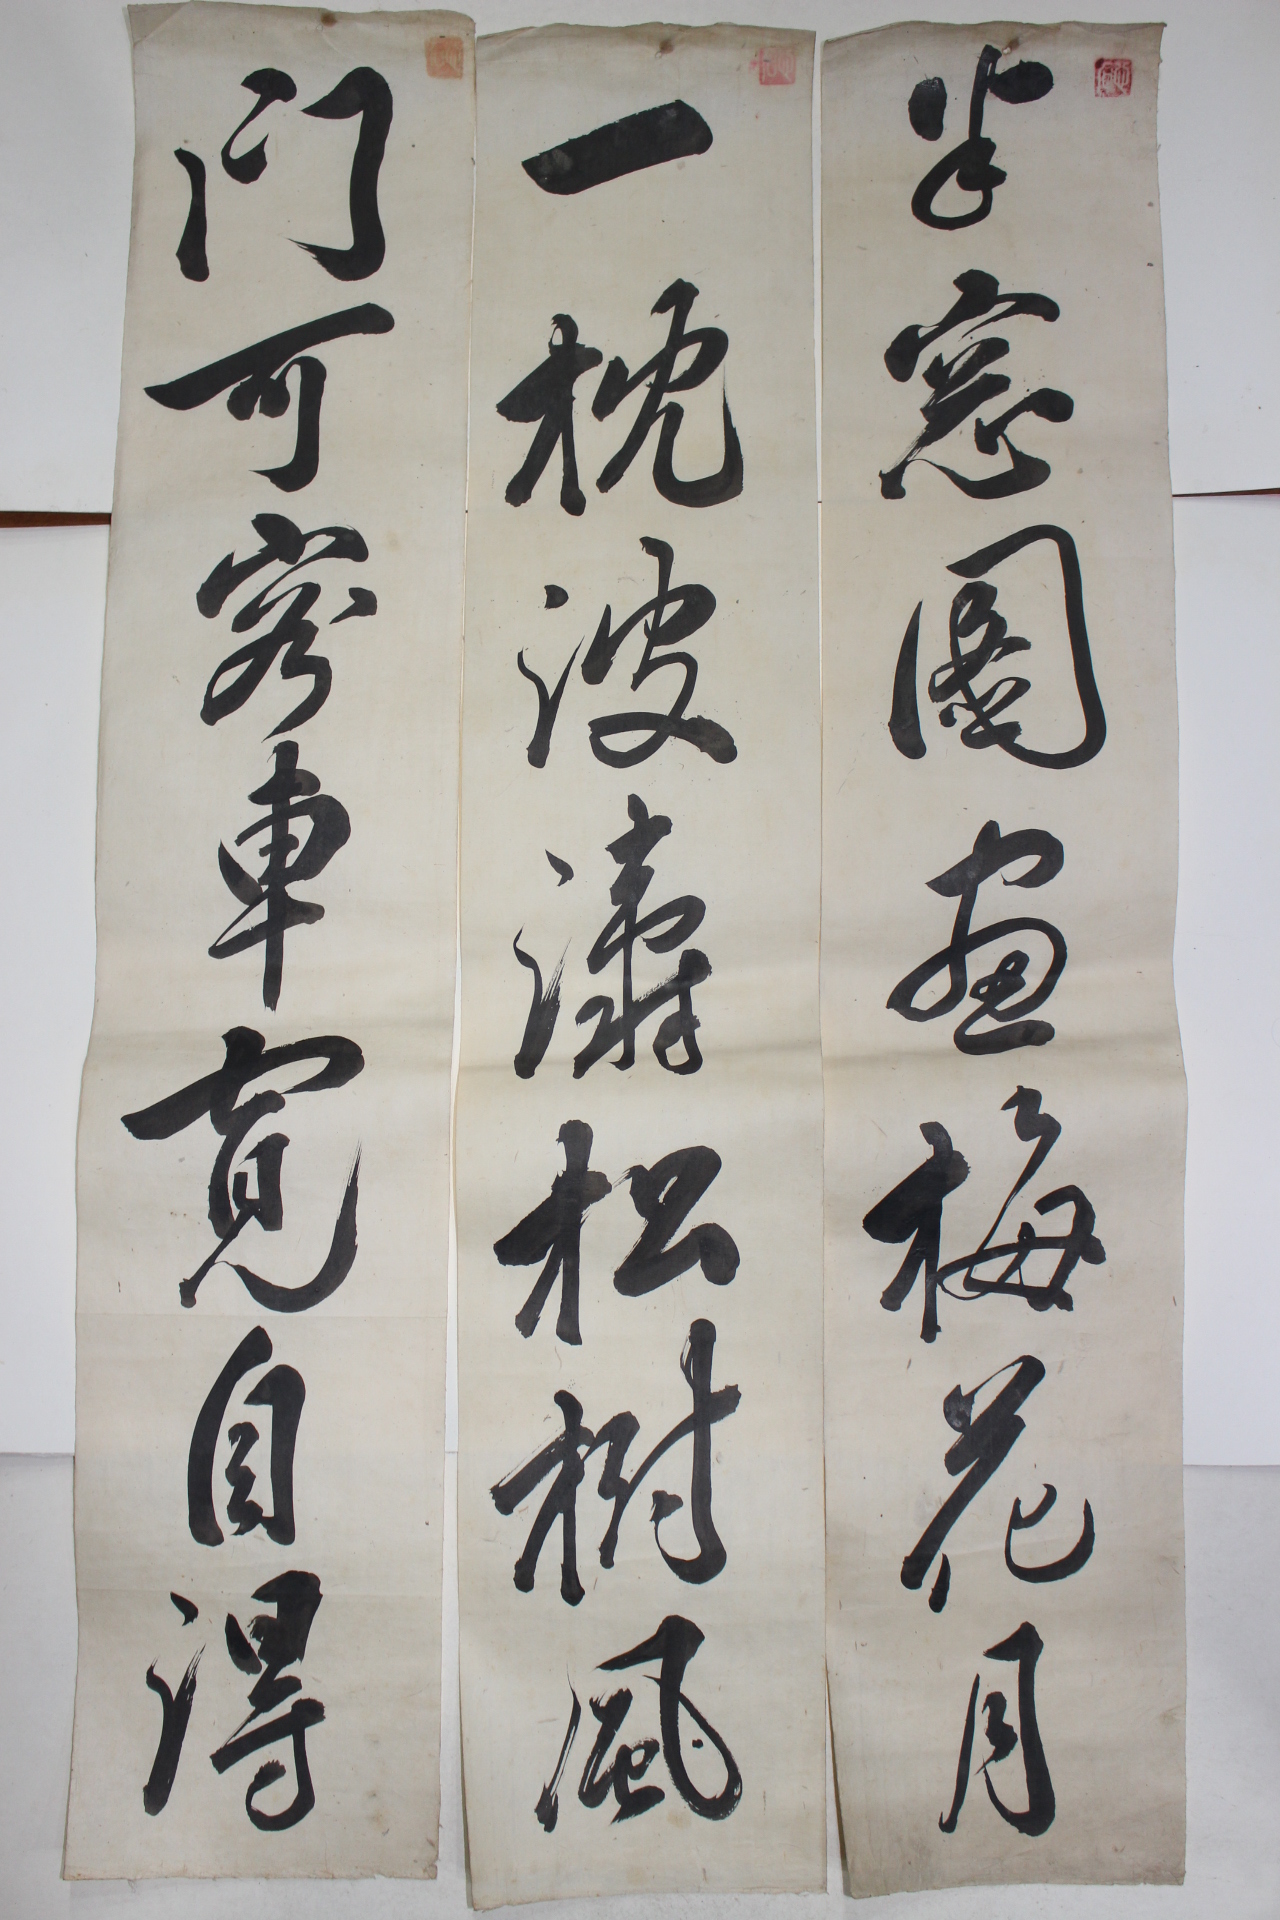 半窓圖画梅花月
一枕波濤松樹風
門可容車寬自得